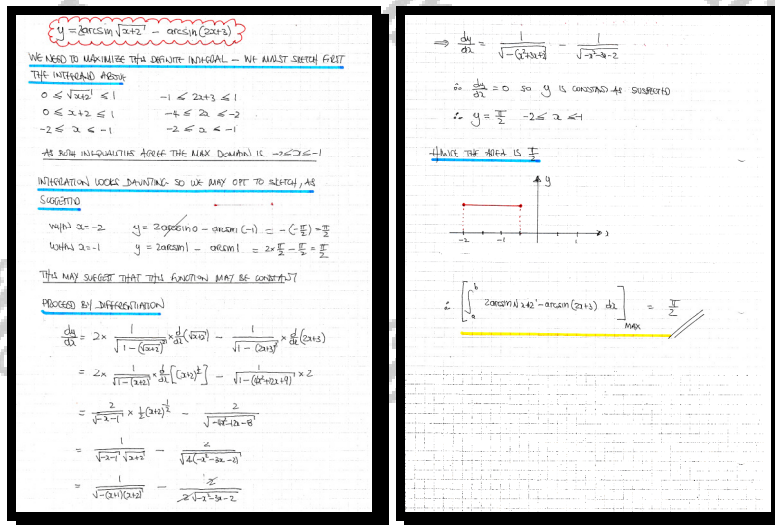 y = 2arcsin√(x+2) - arcsin(2x+3)
WE NEED TO MAXIMIZE THIS DEFINITE INTEGRAL - WE MUST SKETCH FIRST
THE INTEGRAND ABOVE
0 ≤ √(x+2) ≤ 1    -1 ≤ 2x+3 ≤ 1
0 ≤ x+2 ≤ 1    -4 ≤ 2x ≤ -2
-2 ≤ x ≤ -1    -2 ≤ x ≤ -1
AS BOTH INEQUALITIES AGREE THE MAX DOMAIN IS -2≤x≤-1
INTEGRATION LOOKS DAUNTING SO WE MAY OPT TO SKETCH, AS
SUGGESTED
WHEN x=-2    y = 2arcsin0 - arcsin(-1) = -(-π/2) = π/2
WHEN x=-1    y = 2arcsin1 - arcsin1 = 2×π/2 - π/2 = π/2
THIS MAY SUGGEST THAT THIS FUNCTION MAY BE CONSTANT
PROCEED BY DIFFERENTIATION
dy/dx = 2× 1/√(1-(√(x+2))²) × d/dx(√(x+2)) - 1/√(1-(2x+3)²) × d/dx(2x+3)
= 2× 1/√(1-(x+2)) × d/dx[(x+2)^½] - 1/√(1-(4x²+12x+9)) × 2
= 2/√(-x-1) × ½(x+2)^-½ - 2/√(-4x²-12x-8)
= 1/(√(-x-1) √(x+2)) - 2/√(4(-x²-3x-2))
= 1/√(-(x+1)(x+2)) - 2/(2√(-x²-3x-2))
⇒ dy/dx = 1/√(-(x²+3x+2)) - 1/√(-x²-3x-2)
∴ dy/dx = 0 SO y IS CONSTANT AS SUSPECTED
∴ y = π/2    -2≤ x ≤-1
HENCE THE AREA IS π/2
y
-2 -1 1 x
∴ [∫_a^b 2arcsin√(x+2) - arcsin(2x+3) dx]_MAX = π/2